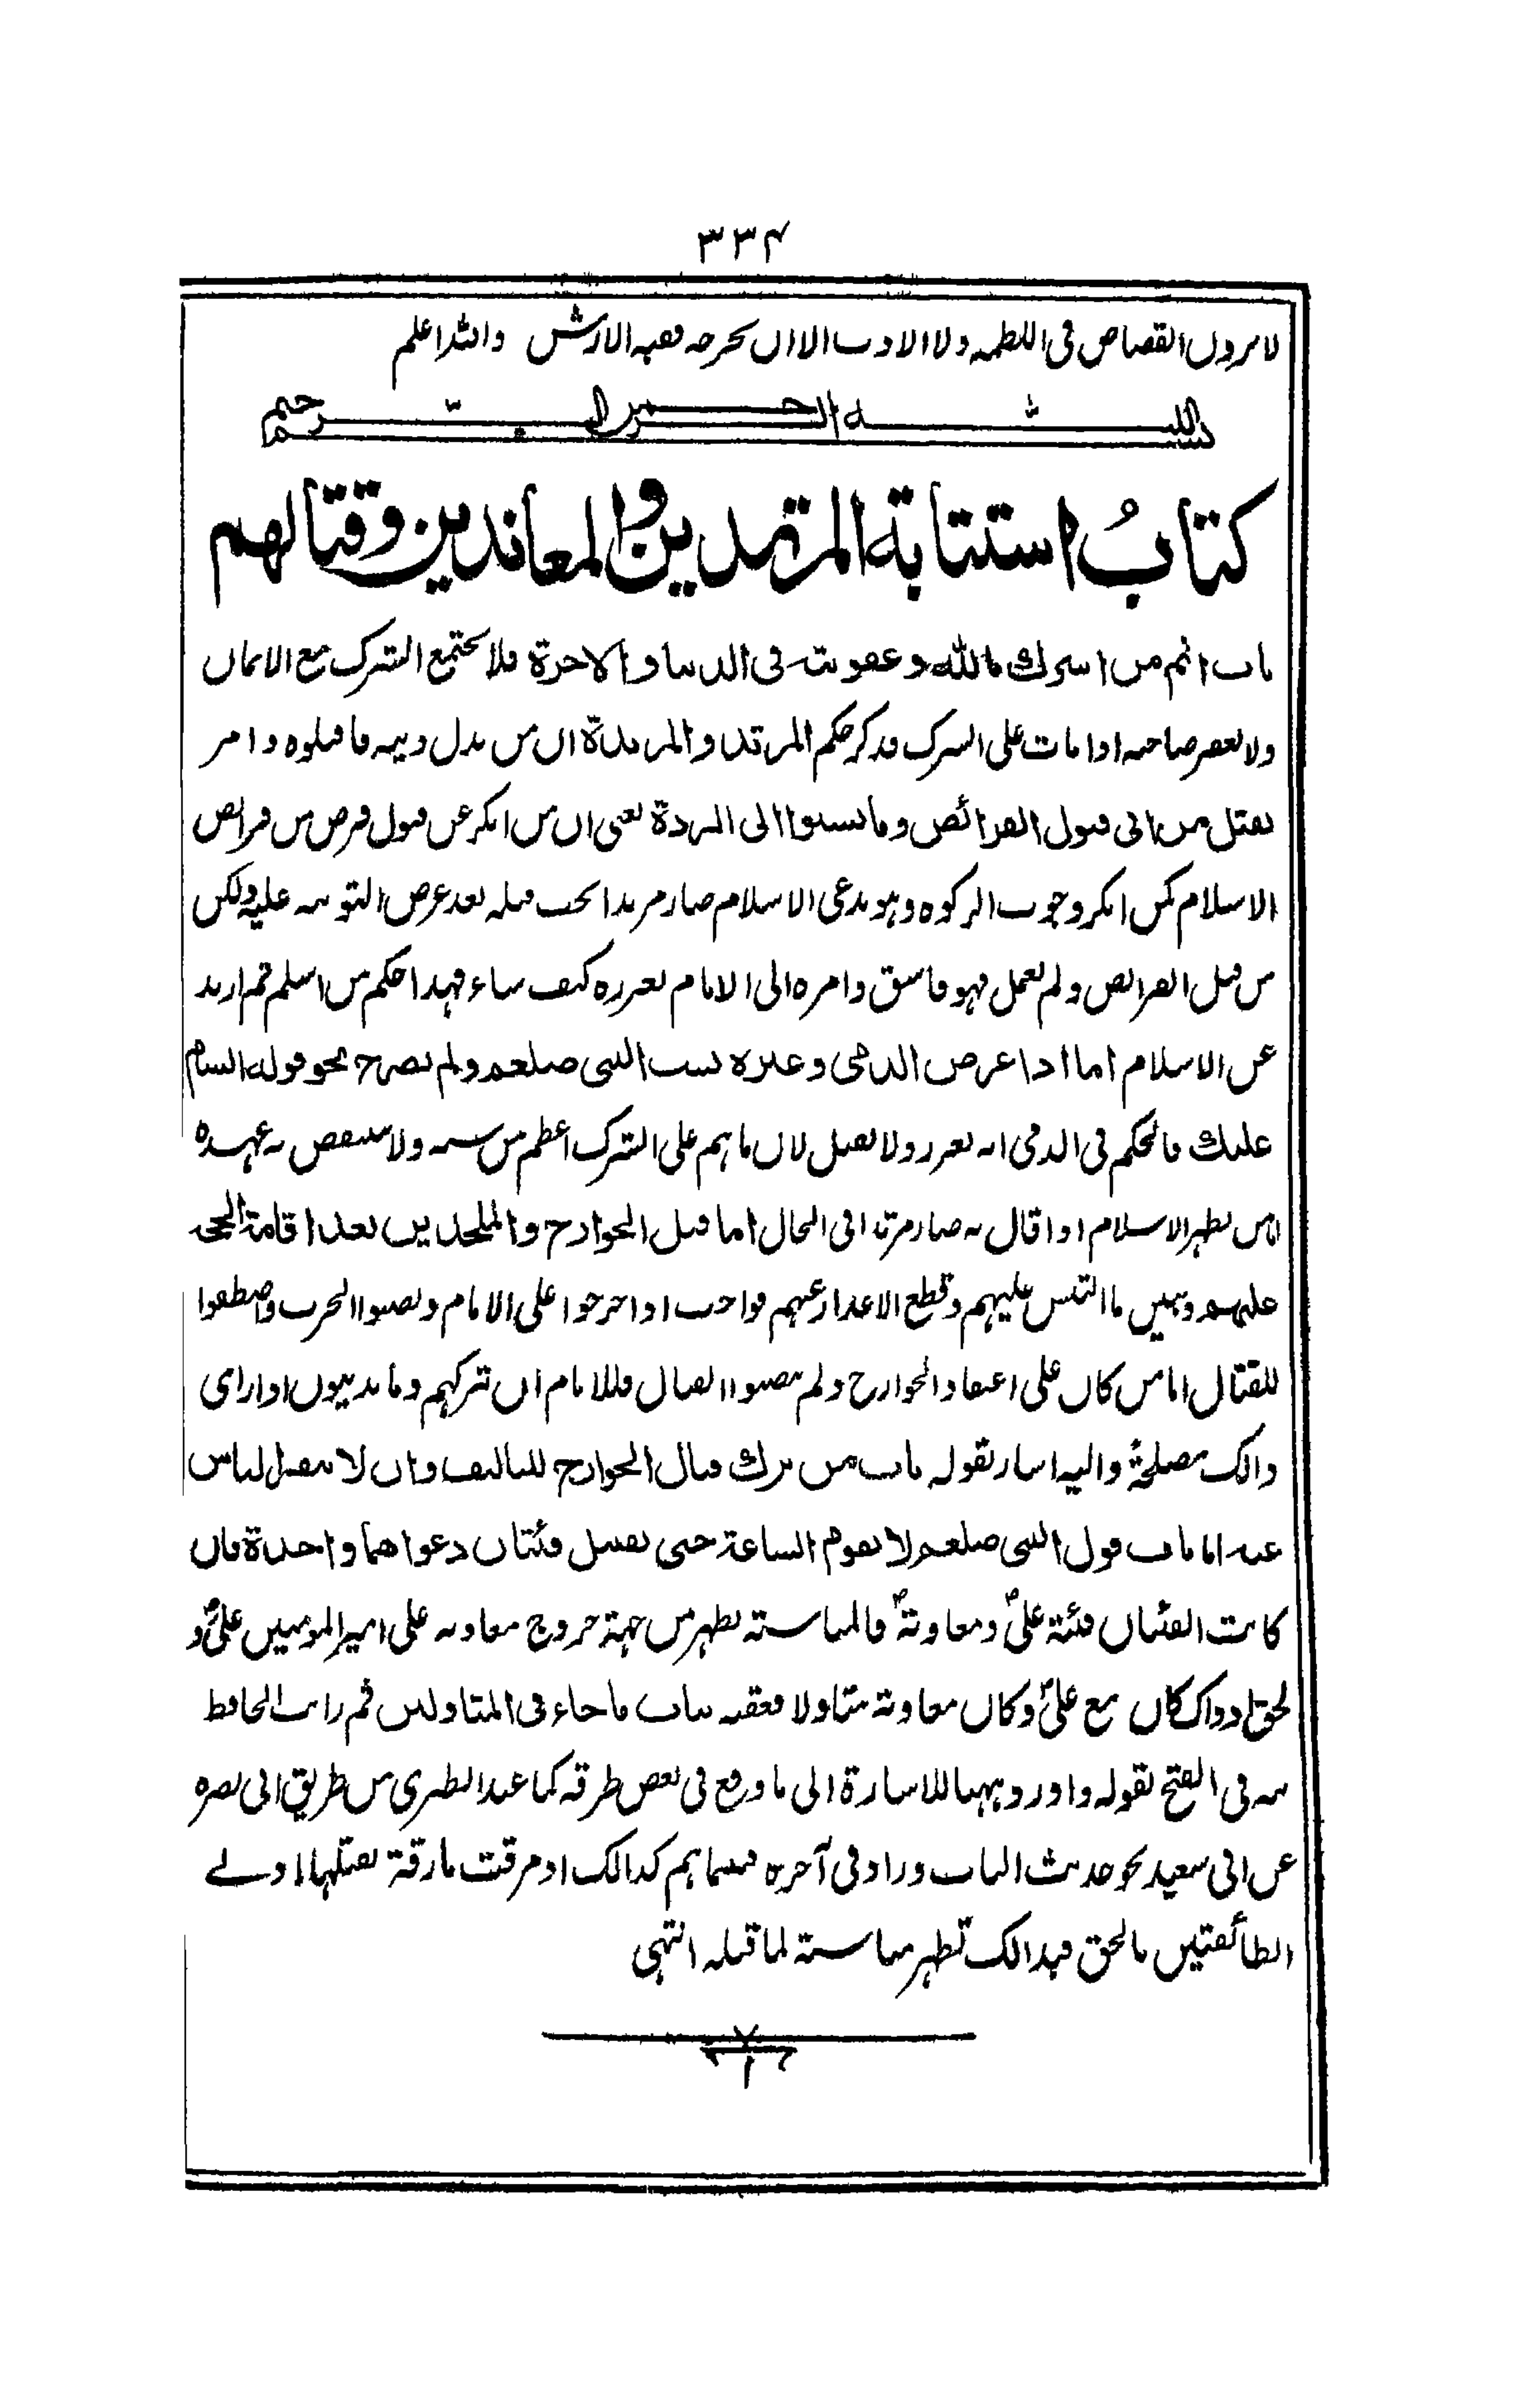 ٣٣٤
لا يرون القصاص في اللطمه ولا الادب الا ان يجرحه ففيه الارش والله اعلم
بسم الله الرحمن الرحيم
كتابُ استتابة المرتدين والمعاندين وقتالهم
باب اثم من اشرك بالله وعقوبته فى الدنيا والاخرة فلا يجتمع الشرك مع الايمان
ولا يغفر صاحبه اذا مات على الشرك فذكر حكم المرتد والمرتدة ان من بدل دينه فاقتلوه وامر
بقتل من ابى قبول الفرائض وما نسبوا الى الردة يعنى ان من انكر عن قبول فرض من فرائض
الاسلام كمن انكر وجوب الزكوه وهو يدعى الاسلام صار مرتدا يجب قتله بعد عرض التوبه عليه ولكن
من قبل الفرائض ولم يعمل فهو فاسق وامره الى الامام يعزره كيف شاء فهذا حكم من اسلم ثم ارتد
عن الاسلام اما اذا عرض الذمى وغيره بسب النبى صلعم ولم يصرح نحو قوله السام
عليك فالحكم فى الذمى انه يعزر ولا يقتل لان ما هم على الشرك اعظم من سبه ولا ينتقض به عهده
اما من يظهر الاسلام اذا قال به صار مرتدا فى الحال اما قتل الخوارج والملحدين بعد اقامة الحجة
عليهم وتبيين ما التبس عليهم وقطع الاعذار عنهم فواجب اذا خرجوا على الامام ونصبوا الحرب واصطفوا
للقتال اما من كان على اعتقاد الخوارج ولم ينصبوا القتال فللامام ان يتركهم وما يدينون اذا راى
ذالك مصلحة واليه اشار بقوله باب من ترك قتال الخوارج للتاليف وان لا ينفر الناس
عنه اما باب قول النبى صلعم لا تقوم الساعة حتى تقتتل فئتان دعواهما واحدة فان
كانت الفئتان فئة علىؓ ومعاويةؓ فالمناسبته تظهر من جهة خروج معاويه على امير المومنين علىؓ و
الحق اذ ذاك كان مع علىؓ وكان معاوية متاولا فعقبه بباب ما جاء فى المتاولين ثم رايت الحافظ
نبه فى الفتح بقوله واورد ههنا للاشارة الى ما وقع فى بعض طرقه كما عند الطبرى من طريق ابى نضره
عن ابى سعيد نحو حديث الباب وزاد فى آخره فبينما هم كذالك اذ مرقت مارقة يقتلها اولے
الطائفتين بالحق فبذالك تظهر مناسبته لما قبله انتهى